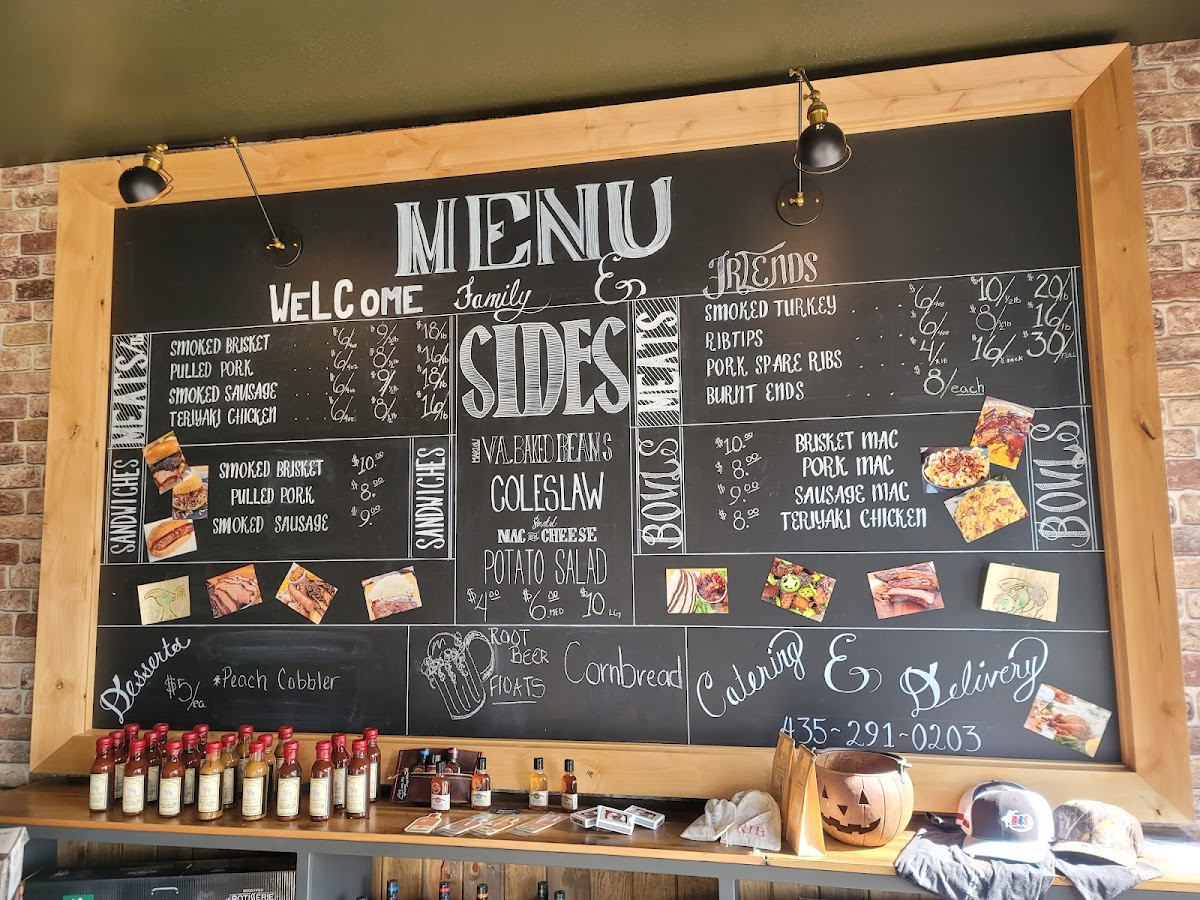 MENU
WELCOME Family & FRIENDS
MEATS
SMOKED BRISKET . . $6/4oz $9/½lb $18/lb
PULLED PORK $6/4oz $8/½lb $16/lb
SMOKED SAUSAGE
TERIYAKI CHICKEN $6/4oz $8/½lb $16/lb
SANDWICHES
SMOKED BRISKET $10.00
PULLED PORK $8.00
SMOKED SAUSAGE $9.00
SANDWICHES
SIDES
VA. BAKED BEANS
COLESLAW
Smoked
MAC and CHEESE
POTATO SALAD
$4.00 $6.00 MED $10 LG
MEATS
SMOKED TURKEY . . $6/4oz $10/½lb $20/lb
RIBTIPS . . $6/4oz $8/½lb $16/lb
PORK SPARE RIBS . $4/RIB $16/½ RACK $30/FULL
BURNT ENDS . . $8/each
BOWLS
$10.00 BRISKET MAC
$8.00 PORK MAC
$9.00 SAUSAGE MAC
$8.00 TERIYAKI CHICKEN
BOWLS
Desserts
$5/ea *Peach Cobbler
ROOT
BEER
FlOATS
Cornbread
Catering & Delivery
435-291-0203
RIB
ROTISSERIE